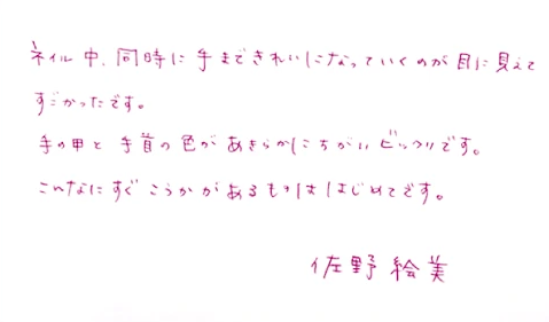 ネイル中、同時に手まできれいになっていくのが目に見えて
すごかったです。
手の甲と手首の色があきらかにちがいビックリです。
こんなにすぐこうかがあるものははじめてです。
佐野絵美